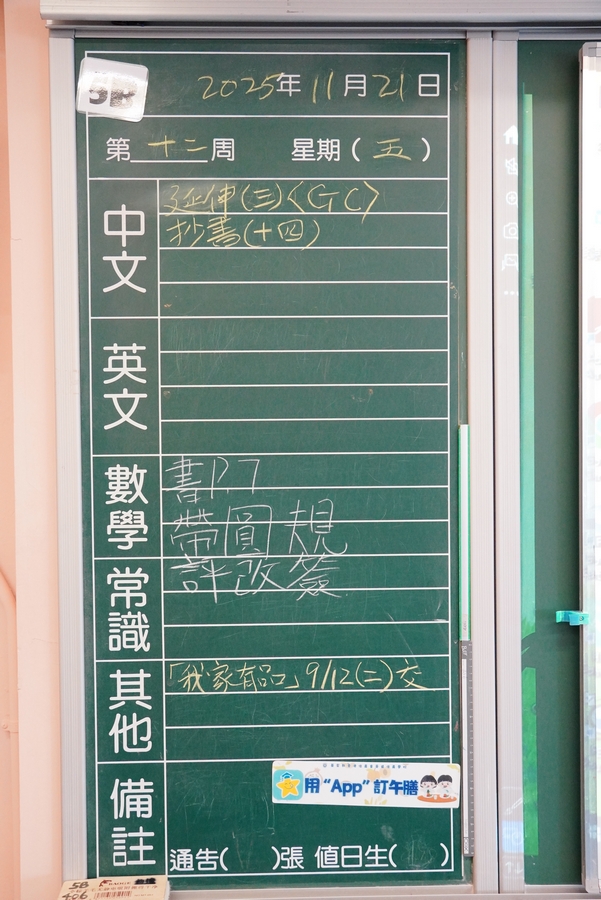 5B
2025年11月21日
第十二周 星期(五)
中文
延伸(三)〈GC〉
抄書(十四)
英文
數學
書P.7
帶圓規
評改簽
常識
其他
「我家有品」9/12(二)交
備註
用“App”訂午膳
通告( )張 值日生( )
5B
406